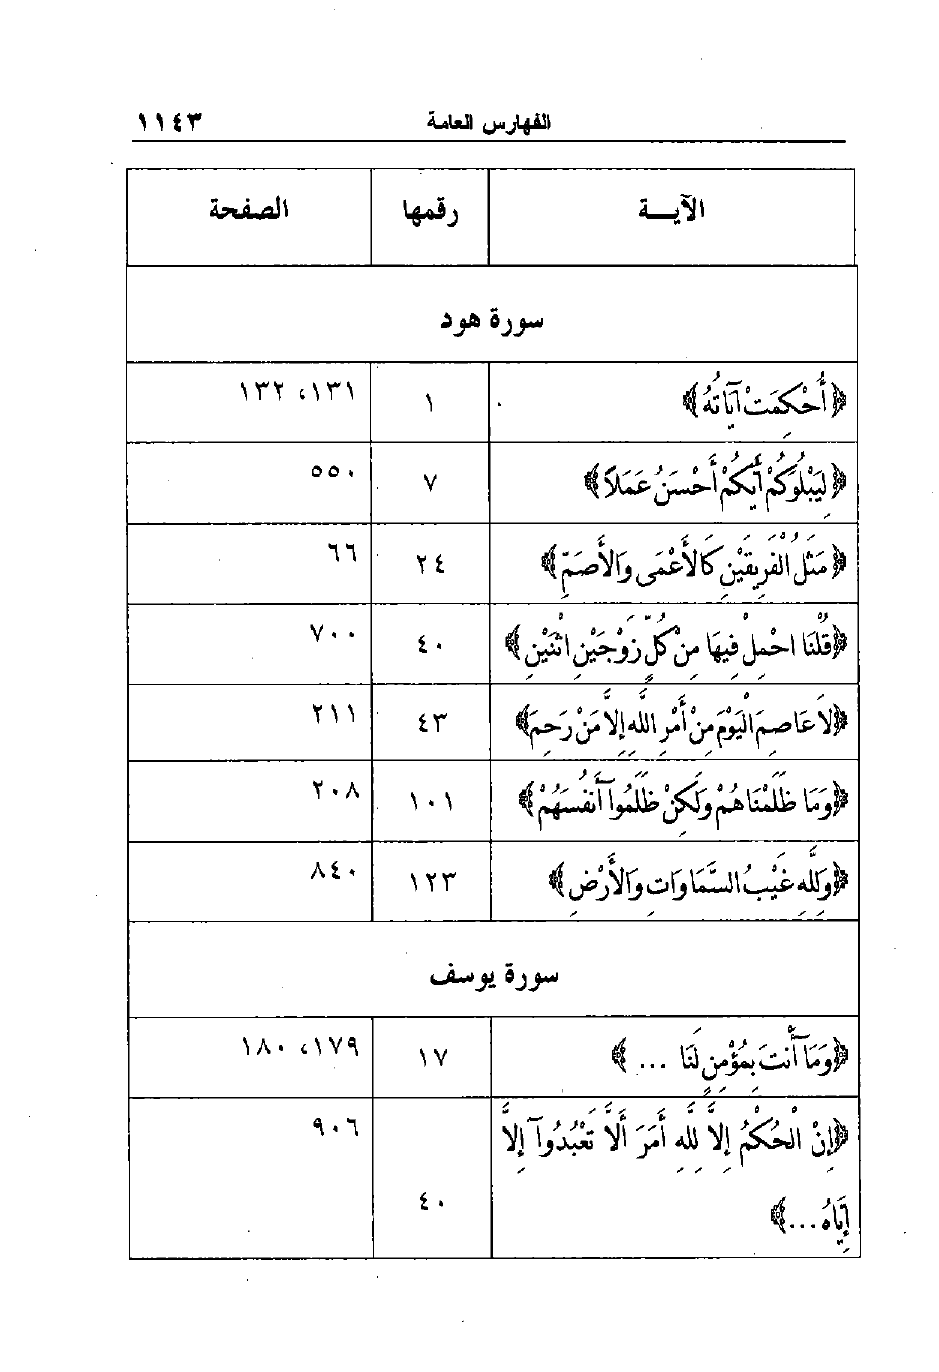 الفهارس العامة ١١٤٣
الآيـــة رقمها الصفحة
سورة هود
﴿أُحْكِمَتْ آيَاتُهُ﴾ ١ ١٣١، ١٣٢
﴿لِيَبْلُوَكُمْ أَيُّكُمْ أَحْسَنُ عَمَلاً﴾ ٧ ٥٥٠
﴿مَثَلُ الْفَرِيقَيْنِ كَالأَعْمَى وَالأَصَمِّ﴾ ٢٤ ٦٦
﴿قُلْنَا احْمِلْ فِيهَا مِنْ كُلٍّ زَوْجَيْنِ اثْنَيْنِ﴾ ٤٠ ٧٠٠
﴿لاَ عَاصِمَ الْيَوْمَ مِنْ أَمْرِ اللَّهِ إِلاَّ مَنْ رَحِمَ﴾ ٤٣ ٢١١
﴿وَمَا ظَلَمْنَاهُمْ وَلَكِنْ ظَلَمُوآ أَنفُسَهُمْ﴾ ١٠١ ٢٠٨
﴿وَلِلَّهِ غَيْبُ السَّمَاوَاتِ وَالأَرْضِ﴾ ١٢٣ ٨٤٠
سورة يوسف
﴿وَمَآ أَنتَ بِمُؤْمِنٍ لَنَا ...﴾ ١٧ ١٧٩، ١٨٠
﴿إِنْ الْحُكْمُ إِلاَّ لِلَّهِ أَمَرَ أَلاَّ تَعْبُدُوآ إِلاَّ ٩٠٦
إِيَّاهُ...﴾ ٤٠